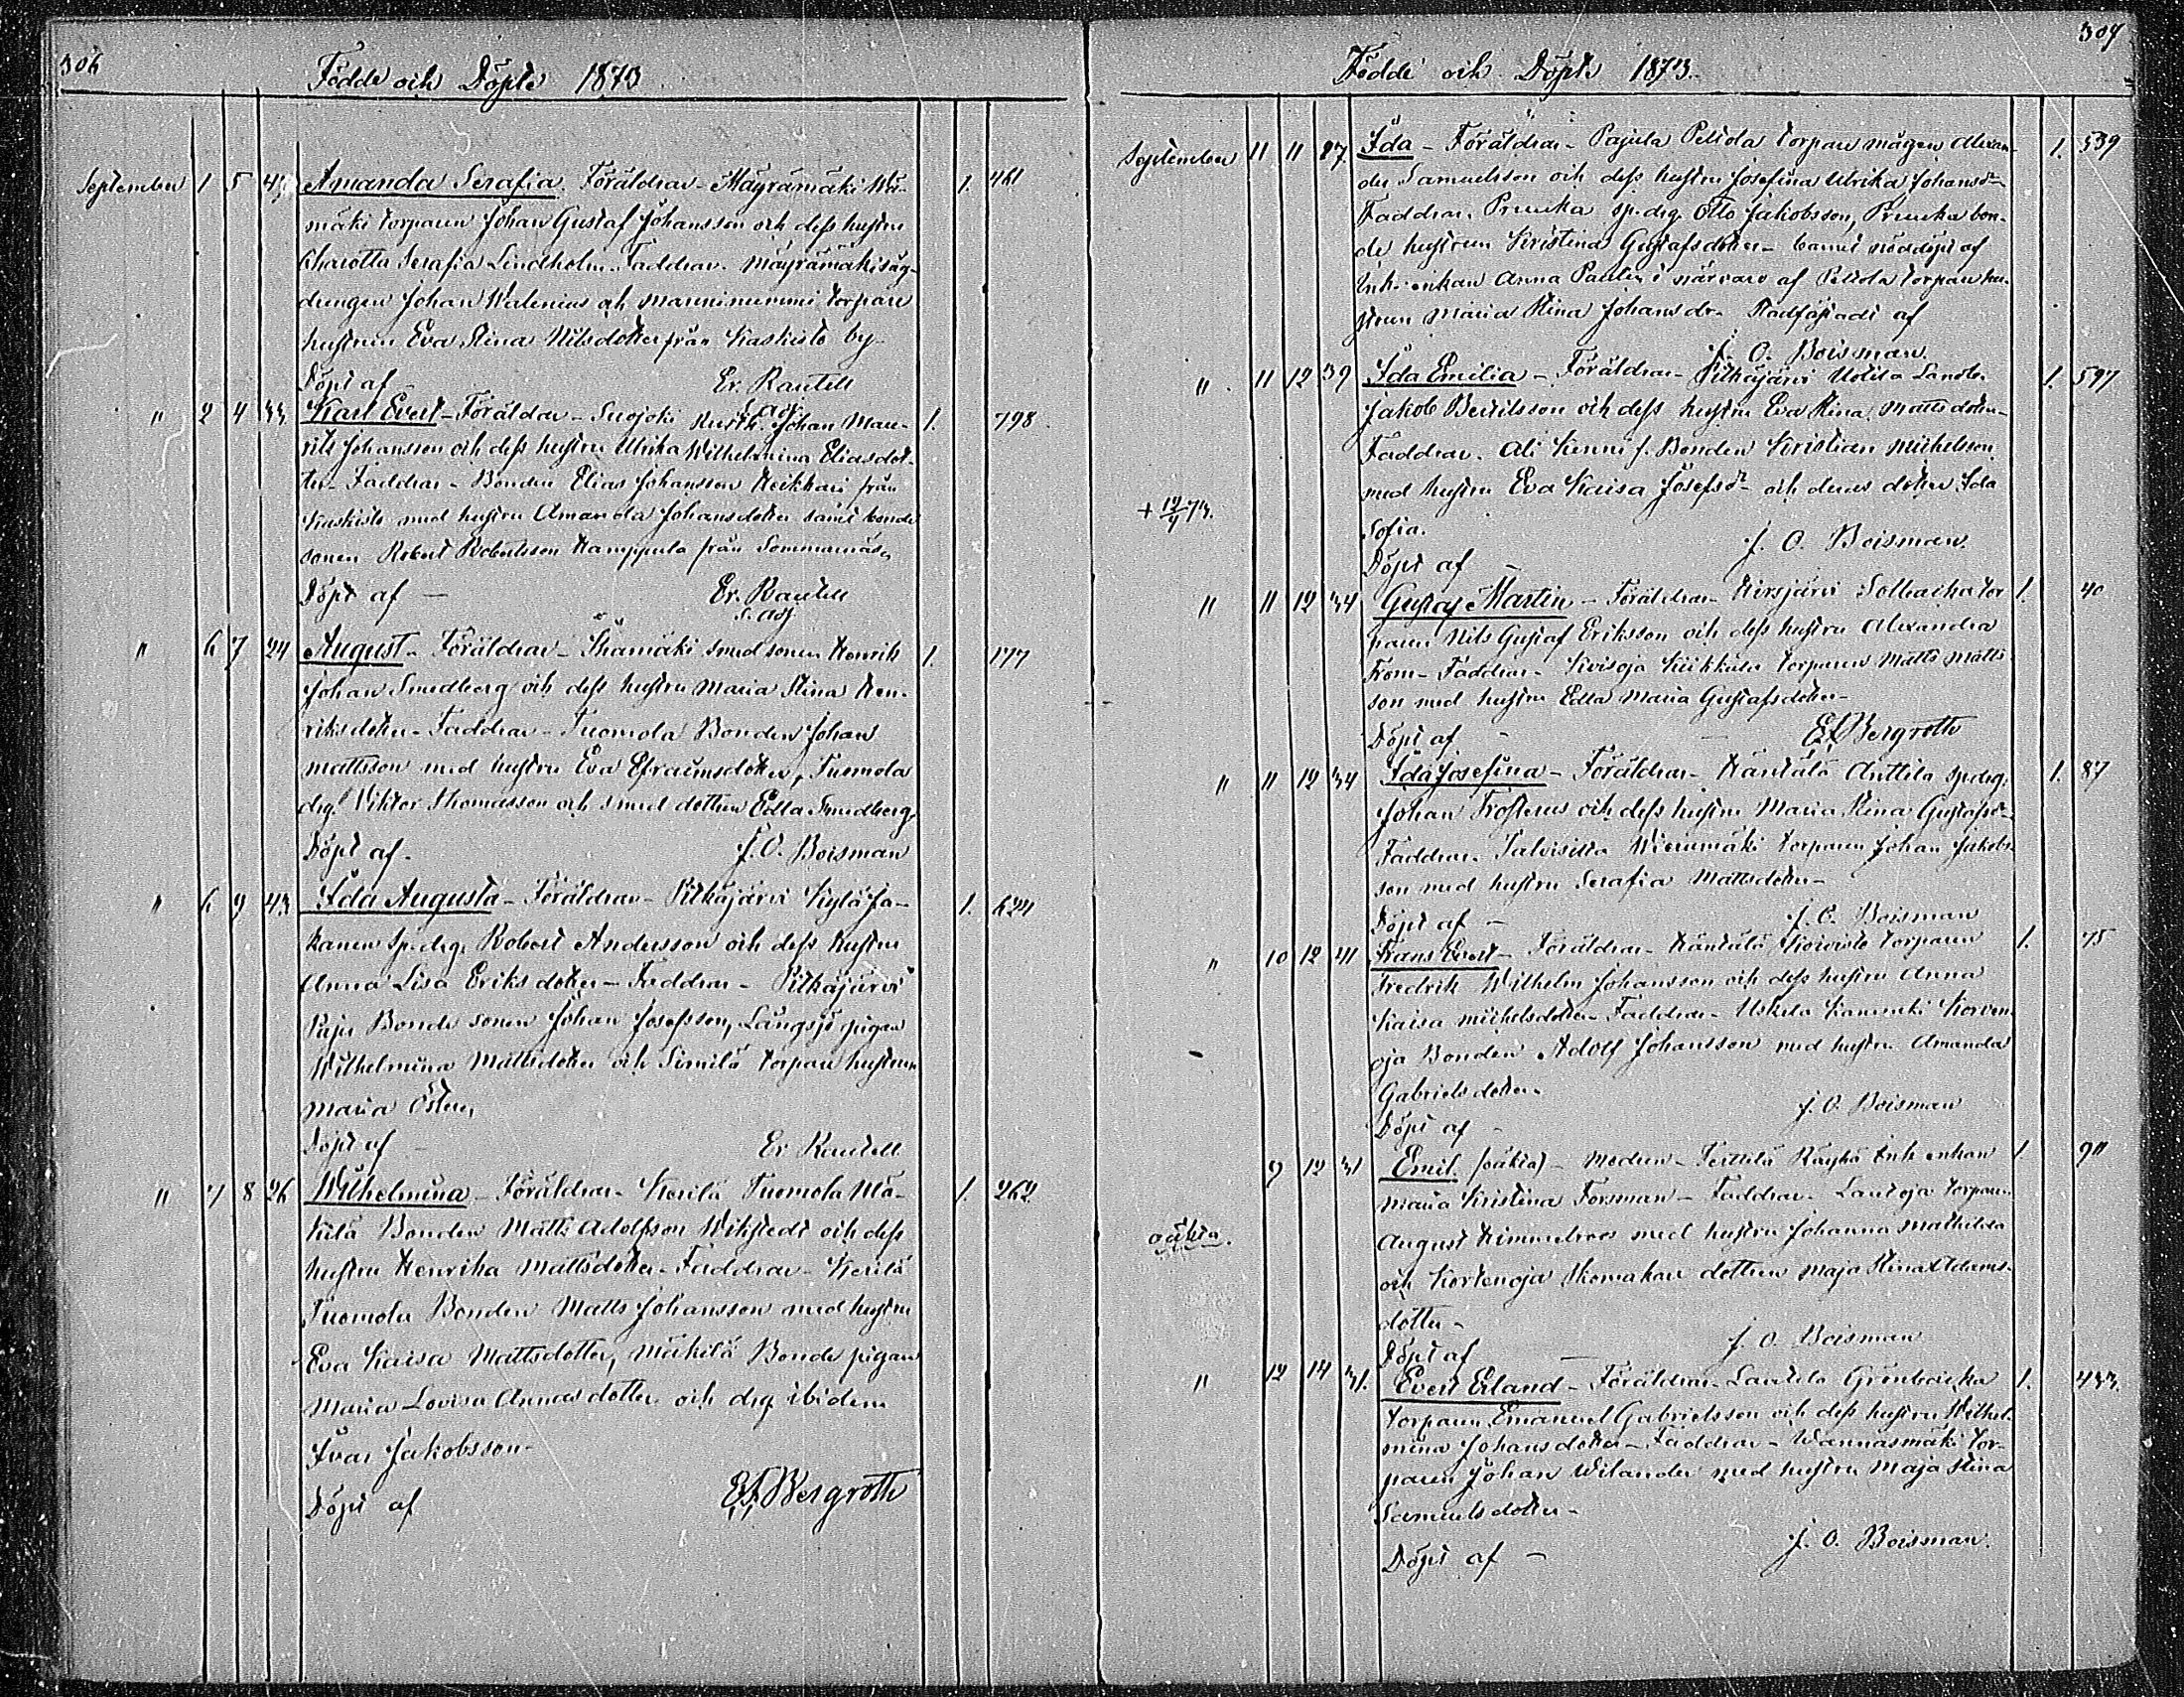 306
Födde och Döpte 1873
September 1 5 43 Amanda Serafia. Föräldrar - Mäyrämäki
mäki torparen Johan Gustaf Johansson och dess hustru
Charotta Serafia Lindholm. Faddrar. Mäyrämäki såg-
drengen Johan Walenius och Manninummi torpare
hustrun Eva Stina Nilsdotter från Kaskisto by. 1. 461
Döpt af - Er. Rautell
s. adj.
" 2 4 33 Karl Evert - Föräldrar - Suojoki Johan Mau- 1. 798
ritz Johansson och dess hustru Ulrika Wilhelmina Eliasdot-
ter - Faddrar - Bonden Elias Johansson Heikkari från
Kaskisto med hustru Amanda Johansdotter samt bonde
sonen Robert Robertsson Kamppula från Sommarnäs,
Döpt af - Er. Rautell
s. adj.
" 6 7 24 August - Föräldrar - Ihamäki smed sonen Henrik 1. 177
Johan Smedberg och dess hustru Maria Stina Hen-
riksdotter - Faddrar - Tuomola Bonden Johan
Mattsson med hustru Eva Efraimsdotter, Tuomola
drg. Viktor Thomasson och smed dottren Edla Smedberg,
Döpt af. J. O. Boisman
" 6 9 43 Ida Augusta - Föräldrar - Pitkäjärvi Kylä Ja- 1. 624
kanen sp. drg. Robert Andersson och dess hustru
Anna Lisa Eriksdotter - Faddrar - Pitkäjärvi
Paju Bonde sonen Johan Josefsson, Långsjö pigan
Wilhelmina Mattsdotter och Simila torpare hustrun
Maria Öster,
Döpt af - Er. Rautell
" 7 8 26 Wilhelmina - Föräldrar - Kerilä Tuomola Mä- 1. 262
kilä Bonden Matts Adolfsson Wikstedt och dess
hustru Henrika Mattsdotter - Faddrar - Kerilä
Tuomola Bonden Matts Johansson med hustru
Eva Kaisa Mattsdotter, Mäkilä Bonde pigan
Maria Lovisa Annasdotter och drg ibidem
Ivar Jakobsson -
Döpt af E. F. Bergroth
307
Födde och Döpte 1873.
September 11 11 27 Ida - Föräldrar - Pajula Peltola torpare mågen Alexan- 1. 539
der Samuelsson och dess hustru Josefina Ulrika Johansdr
Faddrar. Pruuka sp. drg. Otto Jakobsson, Pruuka bon-
de hustrun Kristina Gustafsdotter - barnet nöddöpt af
Inh. enkan Anna i närvaro af Peltola torpare hu-
strun Maria Stina Johansdr - Stadfästadt af
J. O. Boisman.
" 11 12 39 Ida Emilia - Föräldrar - Pitkäjärvi Uotila Landb. 1. 597
Jakob Bertilsson och dess hustru Eva Stina Mattsdotter -
Faddrar. Ali Kenni f. Bonden Kristian Mickelsson
med hustru Eva Kaisa Josefsdr och deras dotter Ida
+ 73. Sofia.
Döpt af - J. O. Boisman.
" 11 12 34 Gustaf Martin - Föräldrar - Hirsjärvi Sollbacka tor 1. 40
paren Nils Gustaf Eriksson och dess hustru Alexandra
From - Faddrar - Kivisoja torparen Matts Matts
son med hustru Edla Maria Gustafsdotter -
Döpt af - E. F. Bergroth
" 11 12 34 Ida Josefina - Föräldrar - Häntälä Anttila sp. drg. 1. 87
Johan Frosterus och dess hustru Maria Stina Gustafsdr -
Faddrar. Talvisilta torparen Johan Jakobs
son med hustru Serafia Mattsdotter -
Döpt af - J. O. Boisman
" 10 12 41 Frans Evert - Föräldrar - Häntälä Koivisto torparen 1. 75
Fredrik Wilhelm Johansson och dess hustru Anna
Kaisa Michelsdotter - Faddrar - Uskela Korven-
oja Bonden Adolf Johansson med hustru Amanda
Gabrielsdotter -
Döpt af - J. O. Boisman
9 12 31 Emil. (oäkta) - Modren - Terttilä Räyhä Inh enkan 1. 90
Maria Kristina Forsman - Faddrar - Lautoja torparen
oäkta. August Himmelroos med hustru Johanna Mathilda
och Kortenoja Skomakare dottren Maja Stina Adams-
dotter -
Döpt af - J. O. Boisman
" 12 14 31. Evert Erland - Föräldrar - Lautela Grönbacka 1. 433.
torparen Emanuel Gabrielsson och dess hustru Wilhel-
mina Johansdotter - Faddrar - Wannasmäki tor-
paren Johan Wilander med hustru Maja Stina
Samuelsdotter -
Döpt af - J. O. Boisman.